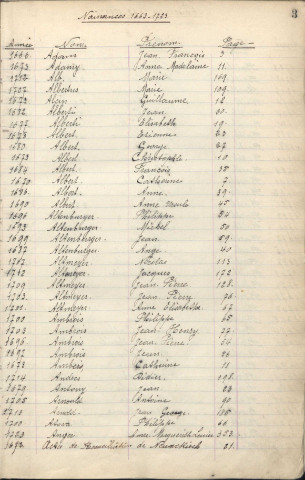 3
Naissances 1663-1723
Année Nom Prénom Page
1666 Adam Jean François 3
1673 Adamy Anne Madelaine 11
Alb. Marie 169
1707 Albertus Marie 109
1673 Guillaume 12
1687 Alberti Jean 40
1677 Alberti Elisabeth 19
1678 Albert Etienne 22
1680 Albert George 27
1673 Albert 10
1684 Albert François 35
1670 Albert Catherine 7
1686 Albert Anne 39
1690 Albert Anne Marie 45
1696 Altenburger Philippe 54
1693 Altenburger Michel 50
1699 Altenburger Jean 59
1687 Altenburger 40
1707 Altmeyer Nicolas 113
1712 Altmeyer Jacques 172
1709 Altmeyer Jean Pierre 128
1703 Altmeyer Jean Pierre 76
1701 Altmeyer Anne Elisabeth 67
1700 Ambrois Philippe 65
1703 Ambrois Jean Henry 77
1695 Ambrois Jean René 36
1697 Ambrois Jean 26
1673 Ambrois Catherine 11
1714 Andres Didier 198
1679 Antony Jean 23
1705 Antoine 90
1713 Jean George 185
1700 Philippe 66
1723 Anger Anne Marguerite Louise 323
1677 Acte de de 21